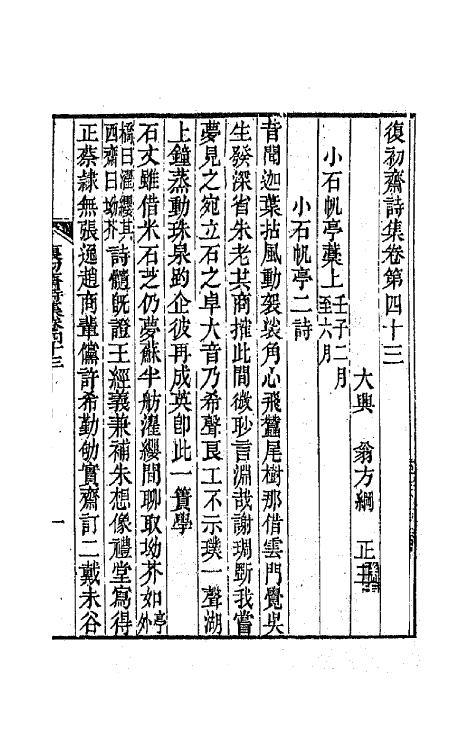 復初齋詩集卷第四十三
大興　翁方綱　正三
小石帆亭藁上壬子二月至六月
小石帆亭二詩
昔聞迦葉拈風動袈裟角心飛麈尾樹那借雲門覺吳
生發深省朱老共商搉此間微眇言淵哉謝琱斵我嘗
夢見之宛立石之卓大音乃希聲良工不示璞一聲湖
上鐘蒸動珠泉趵企彼再成英卽此一簣學
石丈雖借米石芝仍夢蘇半舫濯纓間聊取坳芥如亭外
橋曰濯纓其西齋曰坳芥詩髓旣證王經義兼補朱想像禮堂寫得
正蔡隸無張逸趙商輩儻許希勤劬實齋訂二戴未谷
復初齋詩集卷四十三
一